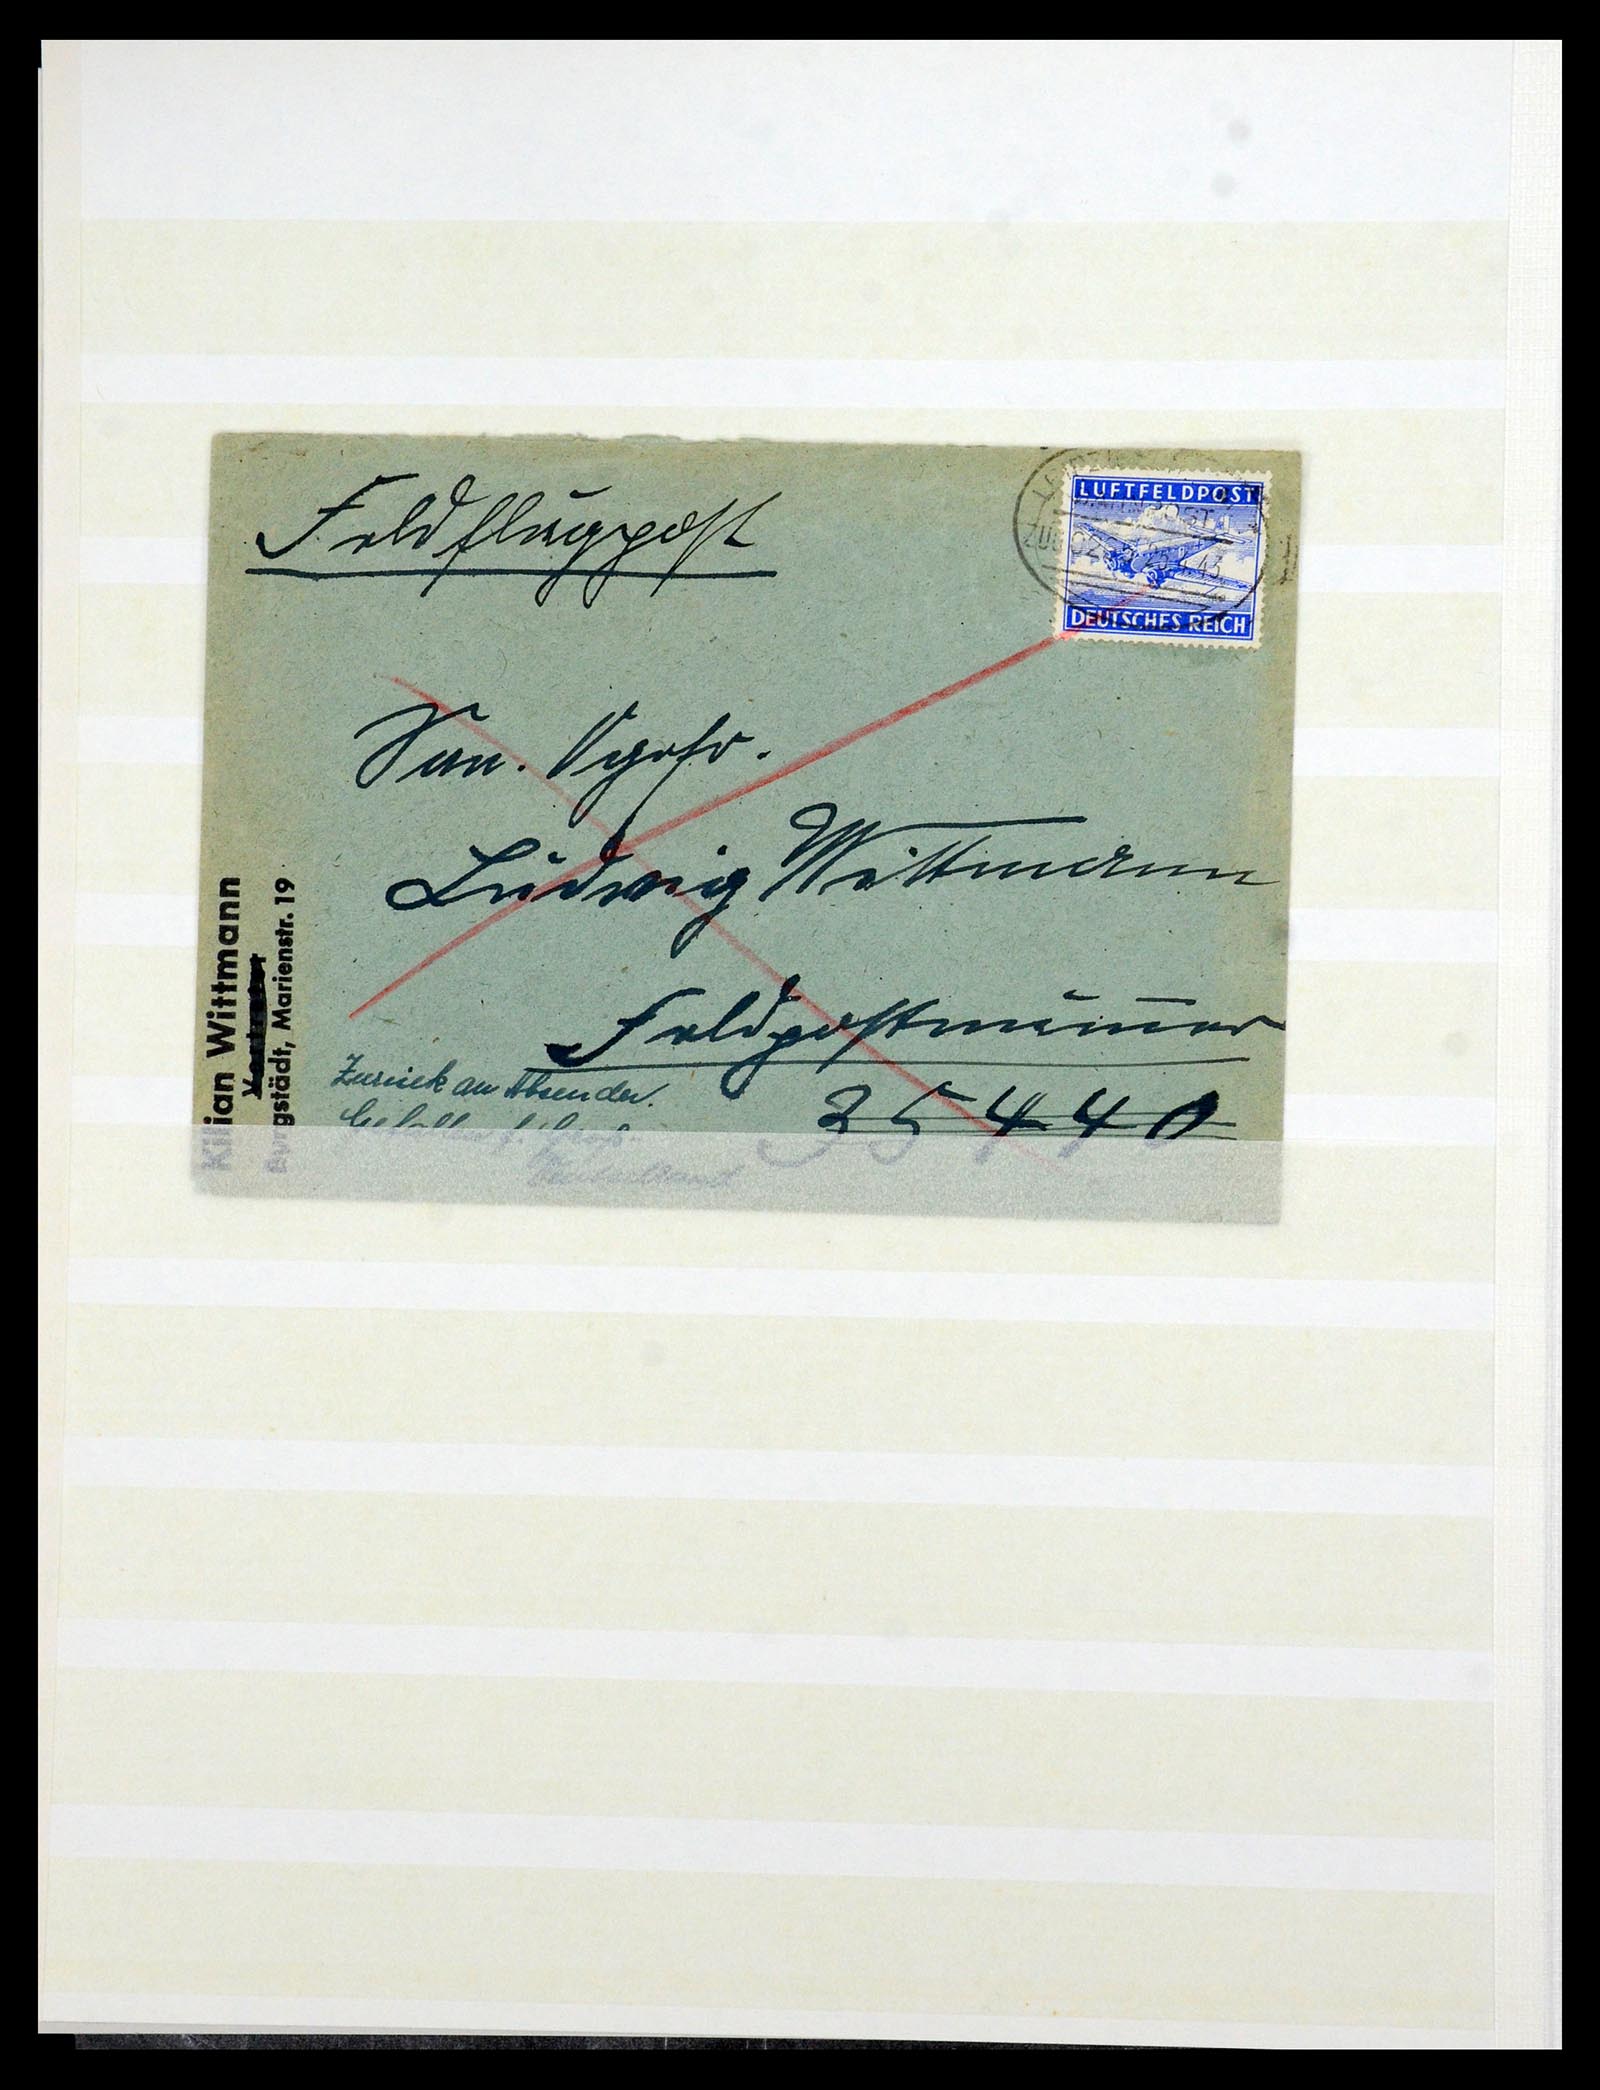 Feldflugpost
LUFTFELDPOST
DEUTSCHES REICH
San. Ogefr.
Ludwig Wittmann
Feldpostnummer
35440
Zurück an Absender.
Gefallen f. Groß-
Deutschland
Kilian Wittmann
Burgstädt, Marienstr. 19
BAHNPOST
ZUG